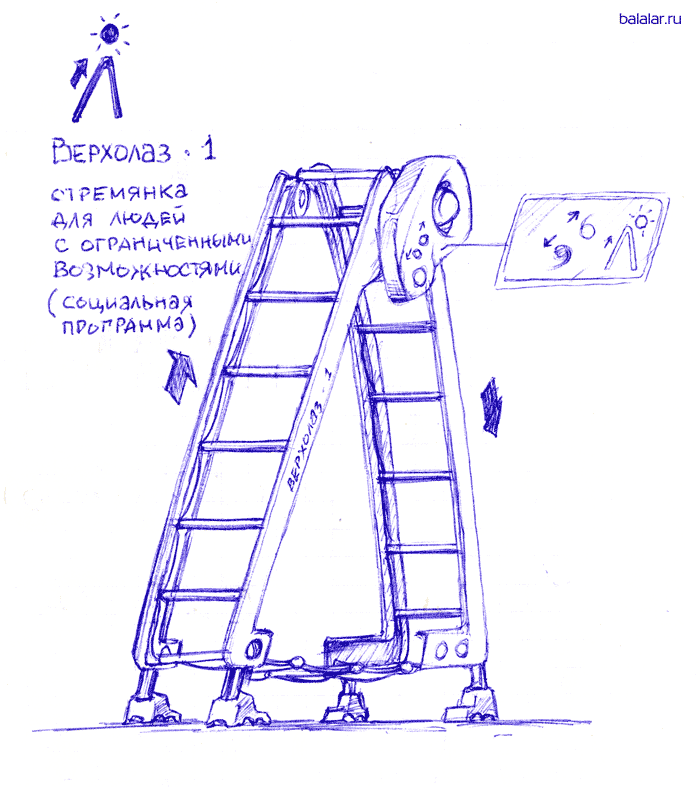 balalar.ru
ВЕРХОЛАЗ · 1
СТРЕМЯНКА
ДЛЯ ЛЮДЕЙ
С ОГРАНИЧЕННЫМИ
ВОЗМОЖНОСТЯМИ
(СОЦИАЛЬНАЯ
ПРОГРАММА)
ВЕРХОЛАЗ · 1